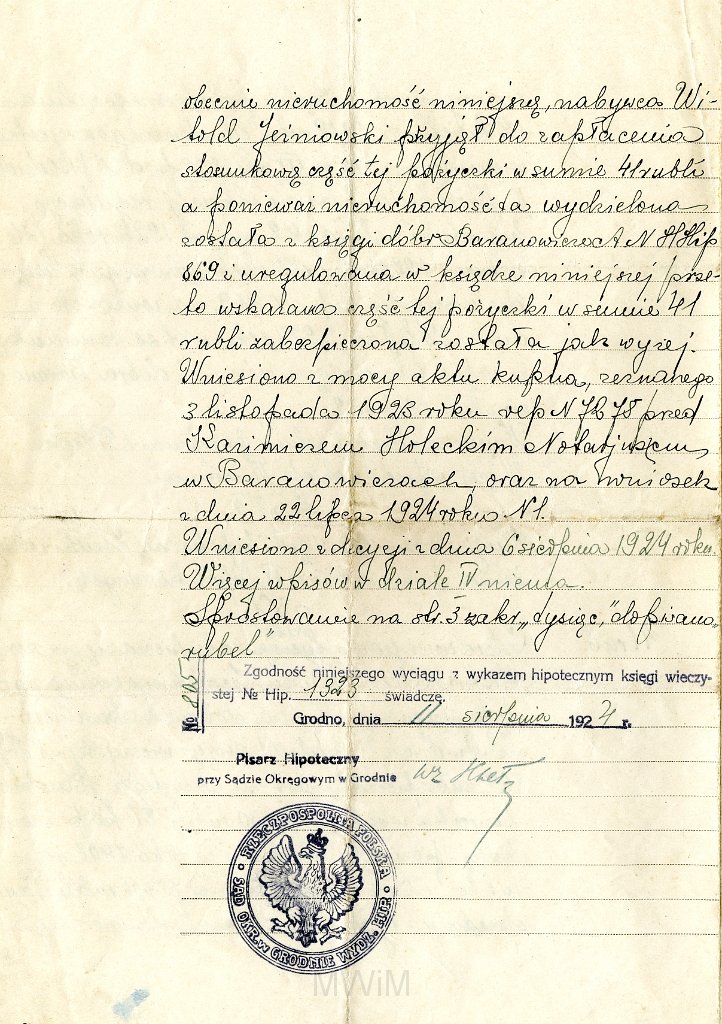 obecnie nieruchomość niniejszą, nabywca Wi-
told Jeśniowski przyjął do zapłacenia
stosunkową część tej pożyczki w sumie 41 rubli
a ponieważ nieruchomość ta wydzielona
została z księgi dóbr Baranowicze N Hip
869 i uregulowana w księdze niniejszej prze-
to wskazana część tej pożyczki w sumie 41
rubli zabezpieczona została jak wyżej.
Wniesiono z mocy aktu kupna, zeznanego
3 listopada 1923 roku rep N 7678 przed
Kazimierzem Hołeckim Notarjuszem
w Baranowiczach, oraz na wniosek
z dnia 22 lipca 1924 roku N1.
Wniesiono z decyzji z dnia 6 sierpnia 1924 roku.
Więcej wpisów w dziale IV niema.
Sprostowanie na str. 3 zakr. „tysiąc," dopisano „
rubel"
Zgodność niniejszego wyciągu z wykazem hipotecznym księgi wieczy-
stej № Hip. 1323 świadczę.
№ 805
Grodno, dnia 11 sierpnia 1924 r.
Pisarz Hipoteczny
przy Sądzie Okręgowym w Grodnie
wz
RZECZPOSPOLITA POLSKA
SĄD OKR. W GRODNIE WYDZ. HIP.
MWiM